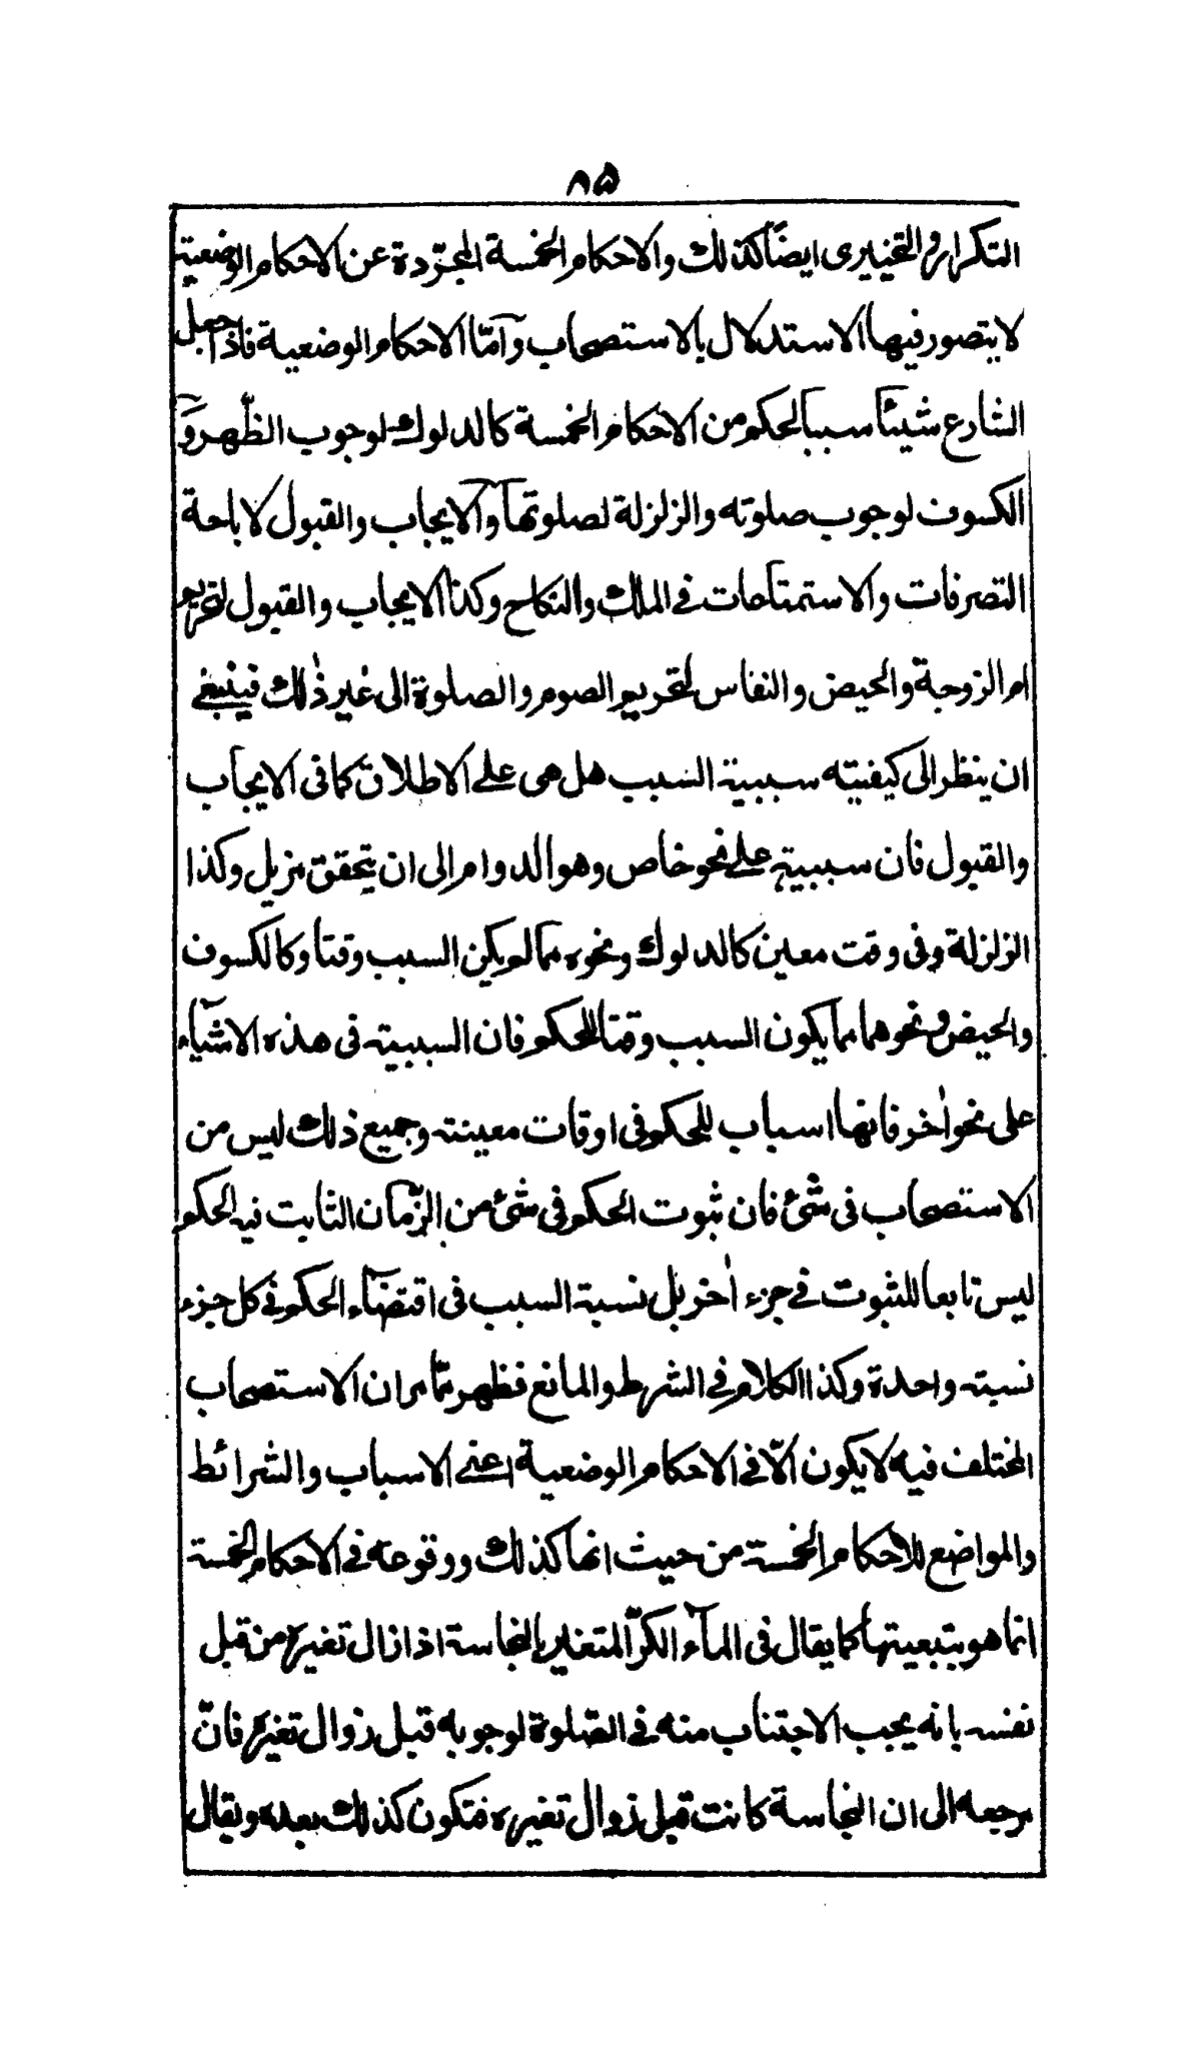 ۸۵
التكرار والتخييرى ايضاً كذلك والاحكام الخمسة المجرّدة عن الاحكام الوضعية
لا يتصور فيها الاستدلال بالاستصحاب وآمّا الاحكام الوضعية فاذا جعل
الشارع شيئاً سبباً لحكم من الاحكام الخمسة كالدلوك لوجوب الظّهر و
الكسوف لوجوب صلوته والزلزلة لصلوتها والايجاب والقبول لاباحة
التصرفات والاستمتاحات فى الملك والنكاح وكذا الايجاب والقبول لتحريم
ام الزوجة والحيض والنفاس لتحريم الصوم والصلوة الى غير ذٰلك فينبغى
ان ينظر الى كيفيته سببية السبب هل هى على الاطلاق كما فى الايجاب
والقبول فان سببية على نحو خاص وهو الدوام الى ان يتحقق مزيل وكذا
الزلزلة وفى وقت معين كالدلوك ونحوه مما لم يكن السبب وقتا وكالكسوف
والحيض ونحوهما مما يكون السبب وقتا للحكم فان السببية فى هذه الاشيآء
على نحو اٰخر فانها اسباب للحكم فى اوقات معينة وجميع ذلك ليس من
الاستصحاب فى شئ فان ثبوت الحكم فى شئ من الزّمان الثابت فيه الحكم
ليس تابعا للثبوت فى جزء اٰخر بل نسبة السبب فى اقتضآء الحكم فى كل جزء
نسبة واحدة وكذا الكلام فى الشرط والمانع فظهر ممّا مر ان الاستصحاب
المختلف فيه لا يكون الّا فى الاحكام الوضعية اعنى الاسباب والشرائط
والمواضع للاحكام الخمسة من حيث انها كذلك ووقوعه فى الاحكام الخمسة
انما هو بتبعيتها كما يقال فى المآء الكرّ المتغير بالنجاسة اذا زال تغيره من قبل
نفسه بانه يجب الاجتناب منه فى الصّلوة لوجوبه قبل زوال تغيره فانّ
مرجعه الى ان النجاسة كانت قبل زوال تغيره فتكون كذلك بعده ويقال